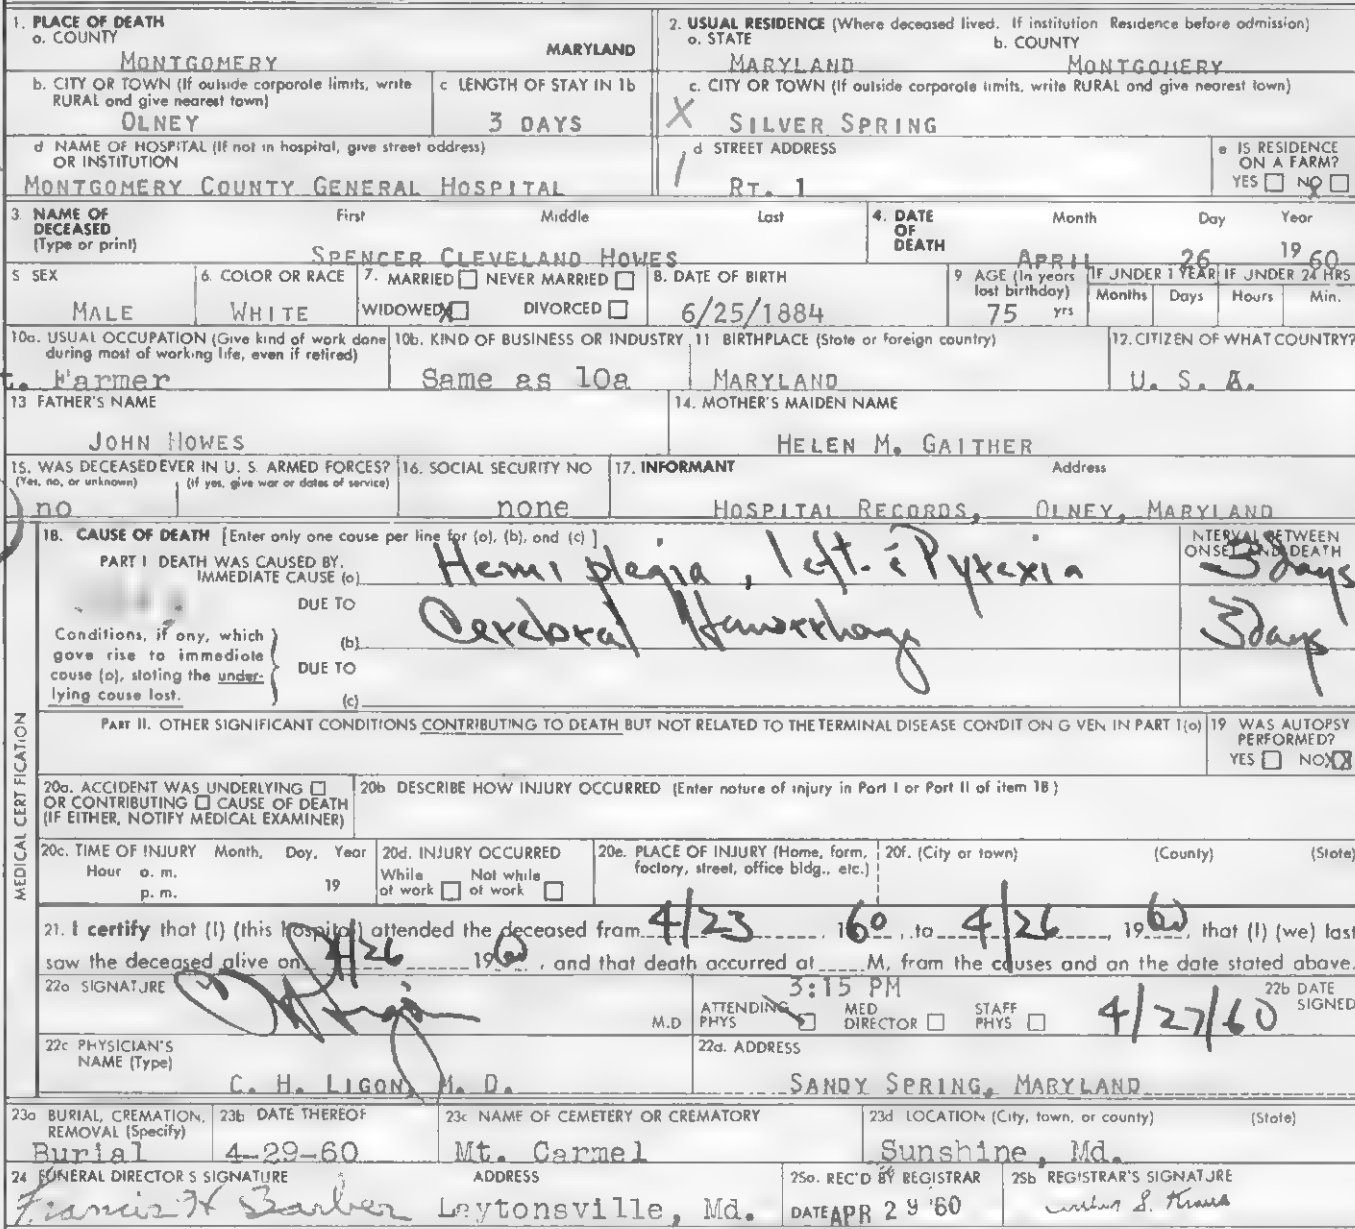 1. PLACE OF DEATH
a. COUNTY
MARYLAND
MONTGOMERY
2. USUAL RESIDENCE (Where deceased lived. If institution Residence before admission)
a. STATE
b. COUNTY
MARYLAND
MONTGOMERY
b. CITY OR TOWN (If outside corporate limits, write
RURAL and give nearest town)
OLNEY
c LENGTH OF STAY IN 1b
3 DAYS
c. CITY OR TOWN (If outside corporate limits, write RURAL and give nearest town)
X SILVER SPRING
d NAME OF HOSPITAL (If not in hospital, give street address)
OR INSTITUTION
MONTGOMERY COUNTY GENERAL HOSPITAL
d STREET ADDRESS
RT. 1
e IS RESIDENCE
ON A FARM?
YES NO
3. NAME OF
DECEASED
(Type or print)
First Middle Last
SPENCER CLEVELAND HOWES
4. DATE
OF
DEATH
Month Day Year
APRIL 26 1960
5 SEX
MALE
6. COLOR OR RACE
WHITE
7. MARRIED NEVER MARRIED
WIDOWED X DIVORCED
8. DATE OF BIRTH
6/25/1884
9 AGE (In years
last birthday)
75 yrs
IF UNDER 1 YEAR
Months Days
IF UNDER 24 HRS
Hours Min.
10a. USUAL OCCUPATION (Give kind of work done
during most of working life, even if retired)
Farmer
10b. KIND OF BUSINESS OR INDUSTRY
Same as 10a
11 BIRTHPLACE (State or foreign country)
MARYLAND
12. CITIZEN OF WHAT COUNTRY?
U. S. A.
13 FATHER'S NAME
JOHN HOWES
14. MOTHER'S MAIDEN NAME
HELEN M. GAITHER
15. WAS DECEASED EVER IN U. S. ARMED FORCES?
(Yes, no, or unknown) (If yes, give war or dates of service)
no
16. SOCIAL SECURITY NO
none
17. INFORMANT Address
HOSPITAL RECORDS, OLNEY, MARYLAND
MEDICAL CERT FICATION
18. CAUSE OF DEATH [Enter only one cause per line for (a), (b), and (c) ]
PART I DEATH WAS CAUSED BY.
IMMEDIATE CAUSE (a)
Hemiplegia, left. c̄ Pyrexia
NTERVAL BETWEEN
ONSET AND DEATH
3 days
DUE TO
(b)
Cerebral Hemorrhage
3 days
Conditions, if any, which
gave rise to immediate
cause (a), stating the under-
lying cause last.
DUE TO
(c)
PART II. OTHER SIGNIFICANT CONDITIONS CONTRIBUTING TO DEATH BUT NOT RELATED TO THE TERMINAL DISEASE CONDIT ON G VEN IN PART 1(a)
19 WAS AUTOPSY
PERFORMED?
YES NO XX
20a. ACCIDENT WAS UNDERLYING
OR CONTRIBUTING CAUSE OF DEATH
(IF EITHER, NOTIFY MEDICAL EXAMINER)
20b DESCRIBE HOW INJURY OCCURRED (Enter nature of injury in Part I or Part II of item 18)
20c. TIME OF INJURY Month, Day, Year
Hour a. m.
p. m. 19
20d. INJURY OCCURRED
While Not while
at work at work
20e. PLACE OF INJURY (Home, farm,
factory, street, office bldg., etc.)
20f. (City or town) (County) (State)
21. I certify that (I) (this hospital) attended the deceased from 4/23 1960, to 4/26, 1960, that (I) (we) last
saw the deceased alive on 4/26 1960, and that death occurred at M, from the causes and on the date stated above.
3:15 PM
22a SIGNATURE
M.D
ATTENDING
PHYS
MED
DIRECTOR
STAFF
PHYS
4/27/60
22b DATE
SIGNED
22c PHYSICIAN'S
NAME (Type)
C. H. LIGON, M. D.
22d. ADDRESS
SANDY SPRING, MARYLAND
23a BURIAL, CREMATION,
REMOVAL (Specify)
Burial
23b DATE THEREOF
4-29-60
23c NAME OF CEMETERY OR CREMATORY
Mt. Carmel
23d LOCATION (City, town, or county) (State)
Sunshine, Md.
24 FUNERAL DIRECTOR S SIGNATURE
Francis H Barber
ADDRESS
Laytonsville, Md.
25a. REC'D BY REGISTRAR
DATE APR 29 '60
25b REGISTRAR'S SIGNATURE
S. Kraus